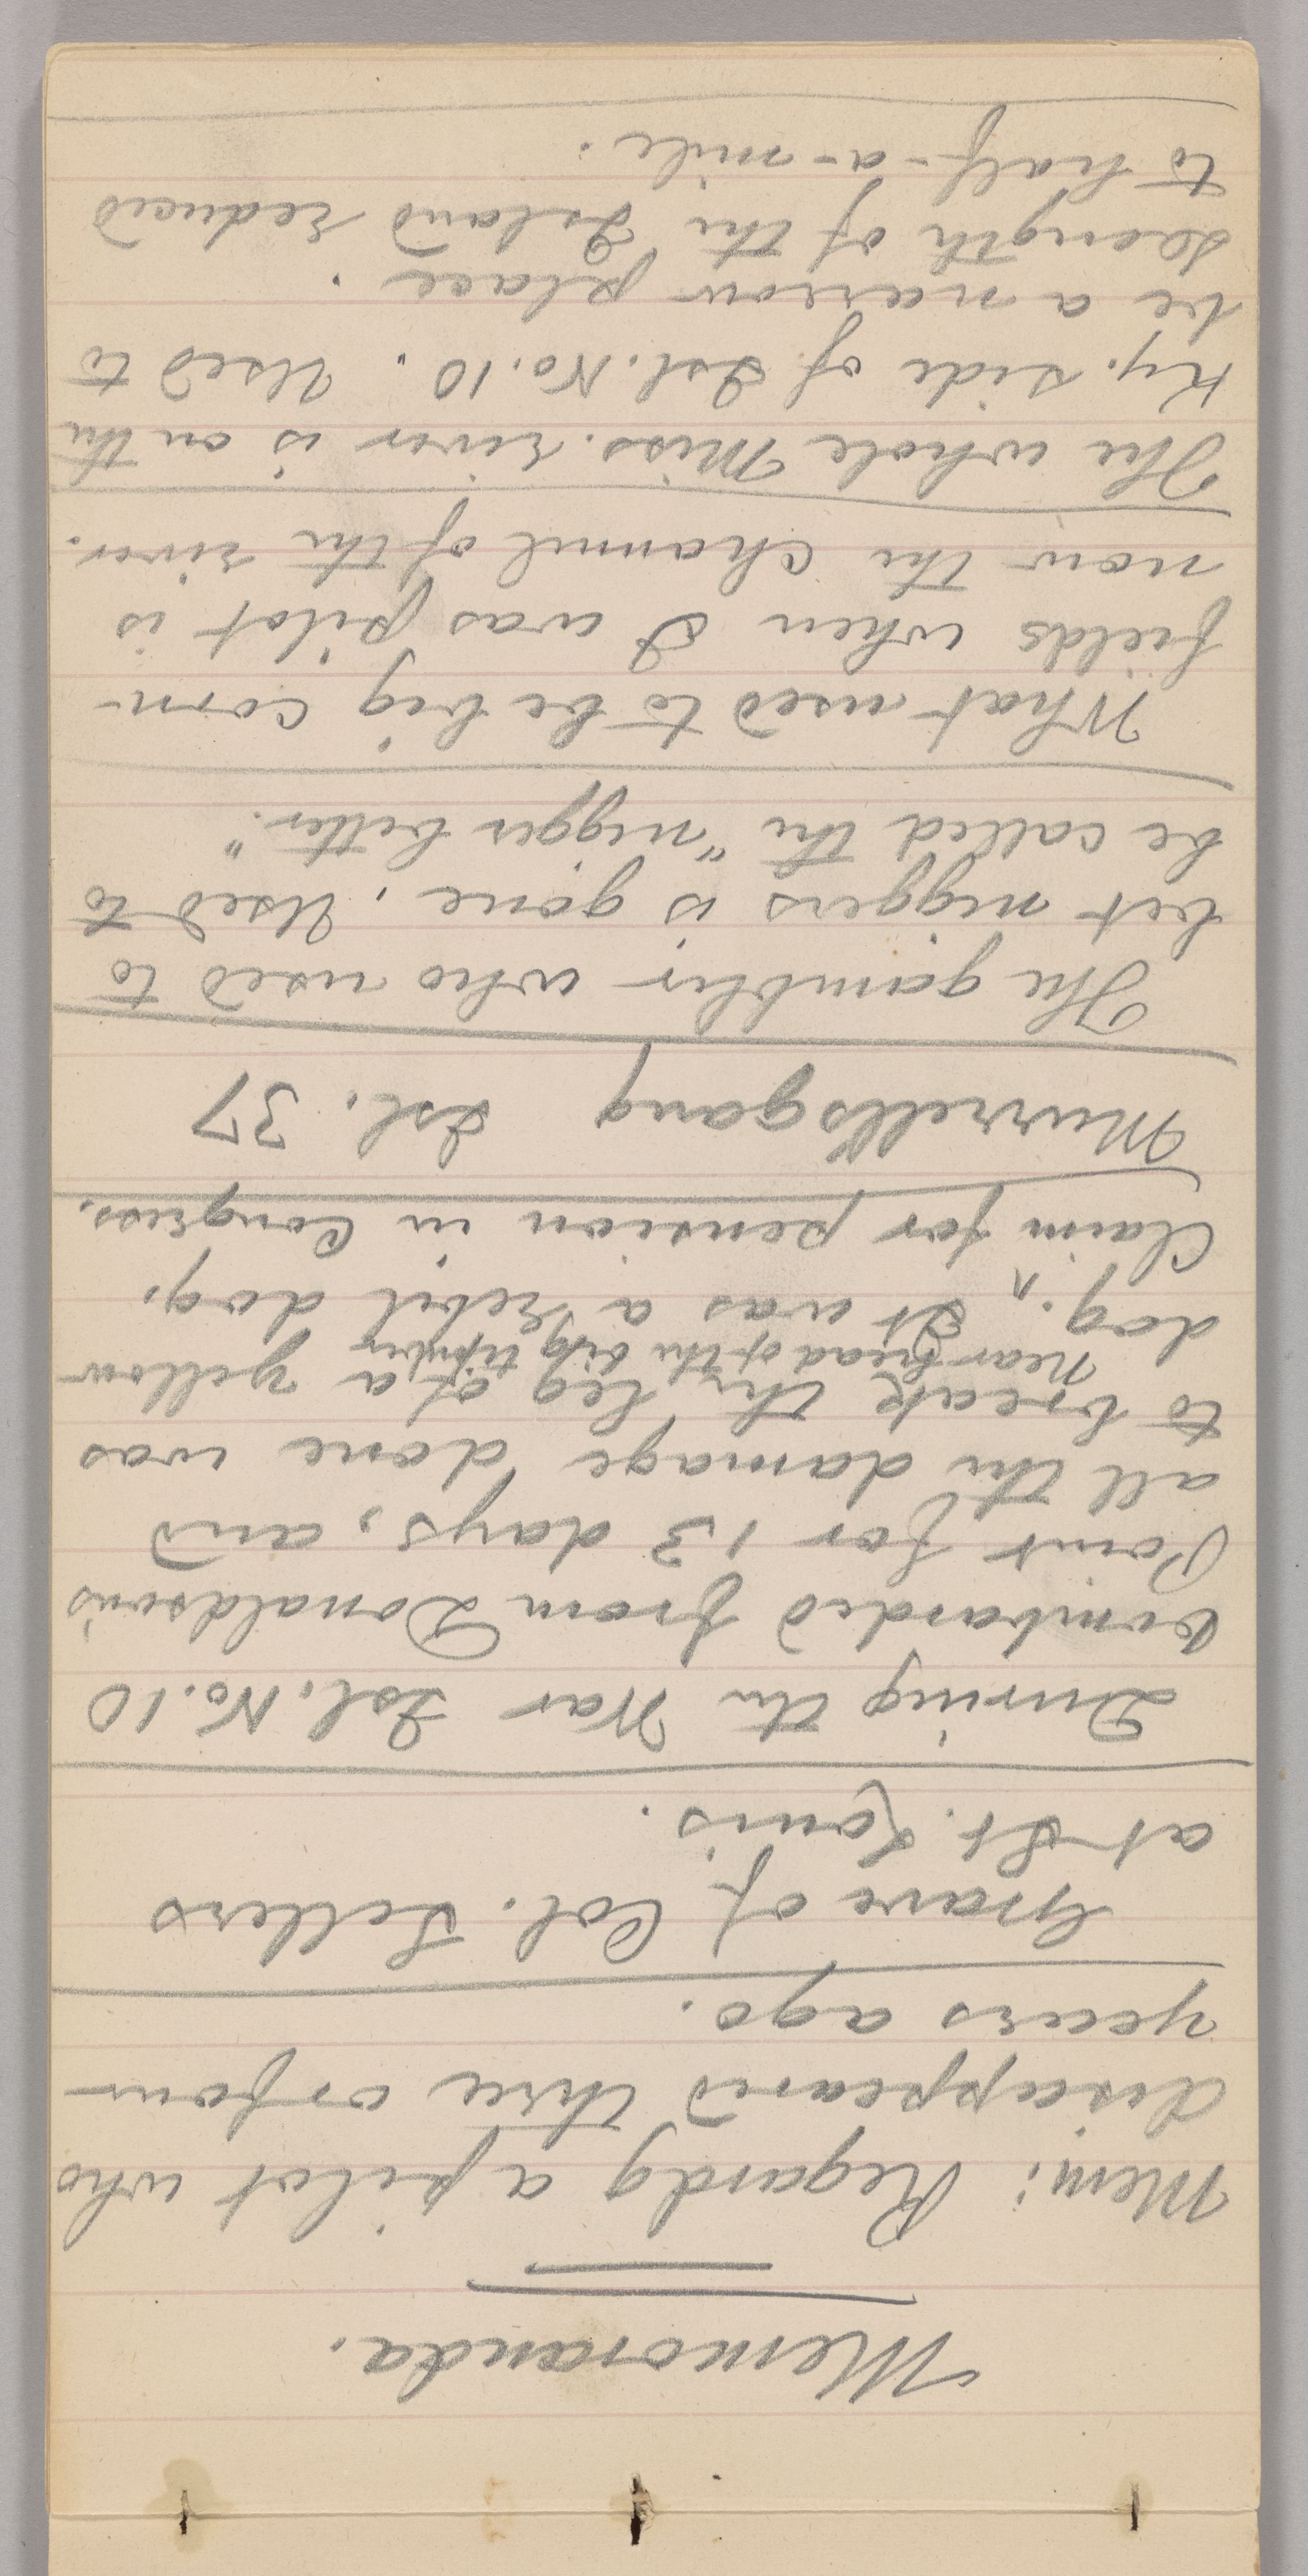 Memoranda.
Mem: Regardg a pilot who
disappeared three or four
years ago.
Grave of Col. Sellers
at St. Louis.
During the War Isl. No. 10
bombarded from Donaldson's
Point for 13 days, and
all the damage done was
to break the leg of a yellow
near head of the big timber
dog. ^ It was a rebel dog.
Claim for pension in Congress.
Murrell's gang Isl. 37
The gambler who used to
bet niggers is gone. Used to
be called the "nigger better."
What used to be big corn-
fields when I was pilot is
now the channel of the river.
The whole Miss. river is on the
Ky. side of Isl. No. 10. Used to
be a narrow place.
Length of the Island reduced
to half-a-mile.